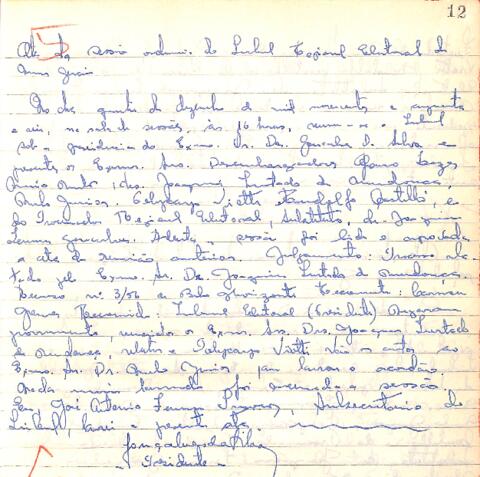 12
Ata da sessão ordin. do Tribunal Regional Eleitoral de
Minas Gerais
Ao dia quatro de dezembro de mil novecentos e cinquenta
e seis, na sala de sessões, às 16 horas, reuniu-se o Tribunal
sob a presidencia do Exmo. Sr. Des. Gonçalves da Silva, e
presentes os Exmos. Srs. Desembargadores Afonso
drs. Joaquim Furtado de Mendonça,
Paulo Junior, Policarpo Viotti, e
do Procurador Regional Eleitoral, Substituto, dr. Joaquim
Gonçalves. Aberta a sessão foi lida e aprovada
a ata da reunião anterior. Julgamento: Processo rela-
tado pelo Exmo. Sr. Dr. Joaquim Furtado de Mendonça.
Recurso nº 3/56 de Belo Horizonte Recorrente: Carmen
Recorrido: Tribunal Eleitoral (Presidente) Negaram
provimento, vencidos os Exmos. Srs. Drs. Joaquim Furtado
de Mendonça, relator e Policarpo Viotti. Vão os autos ao
Exmo. Sr. Dr. Paulo Junior, para lavrar o acordão.
Nada mais havendo, foi encerrada a sessão.
Eu, José Antonio, Subsecretario do
Tribunal, lavrei a presente ata.
Gonçalves da Silva
- Presidente -